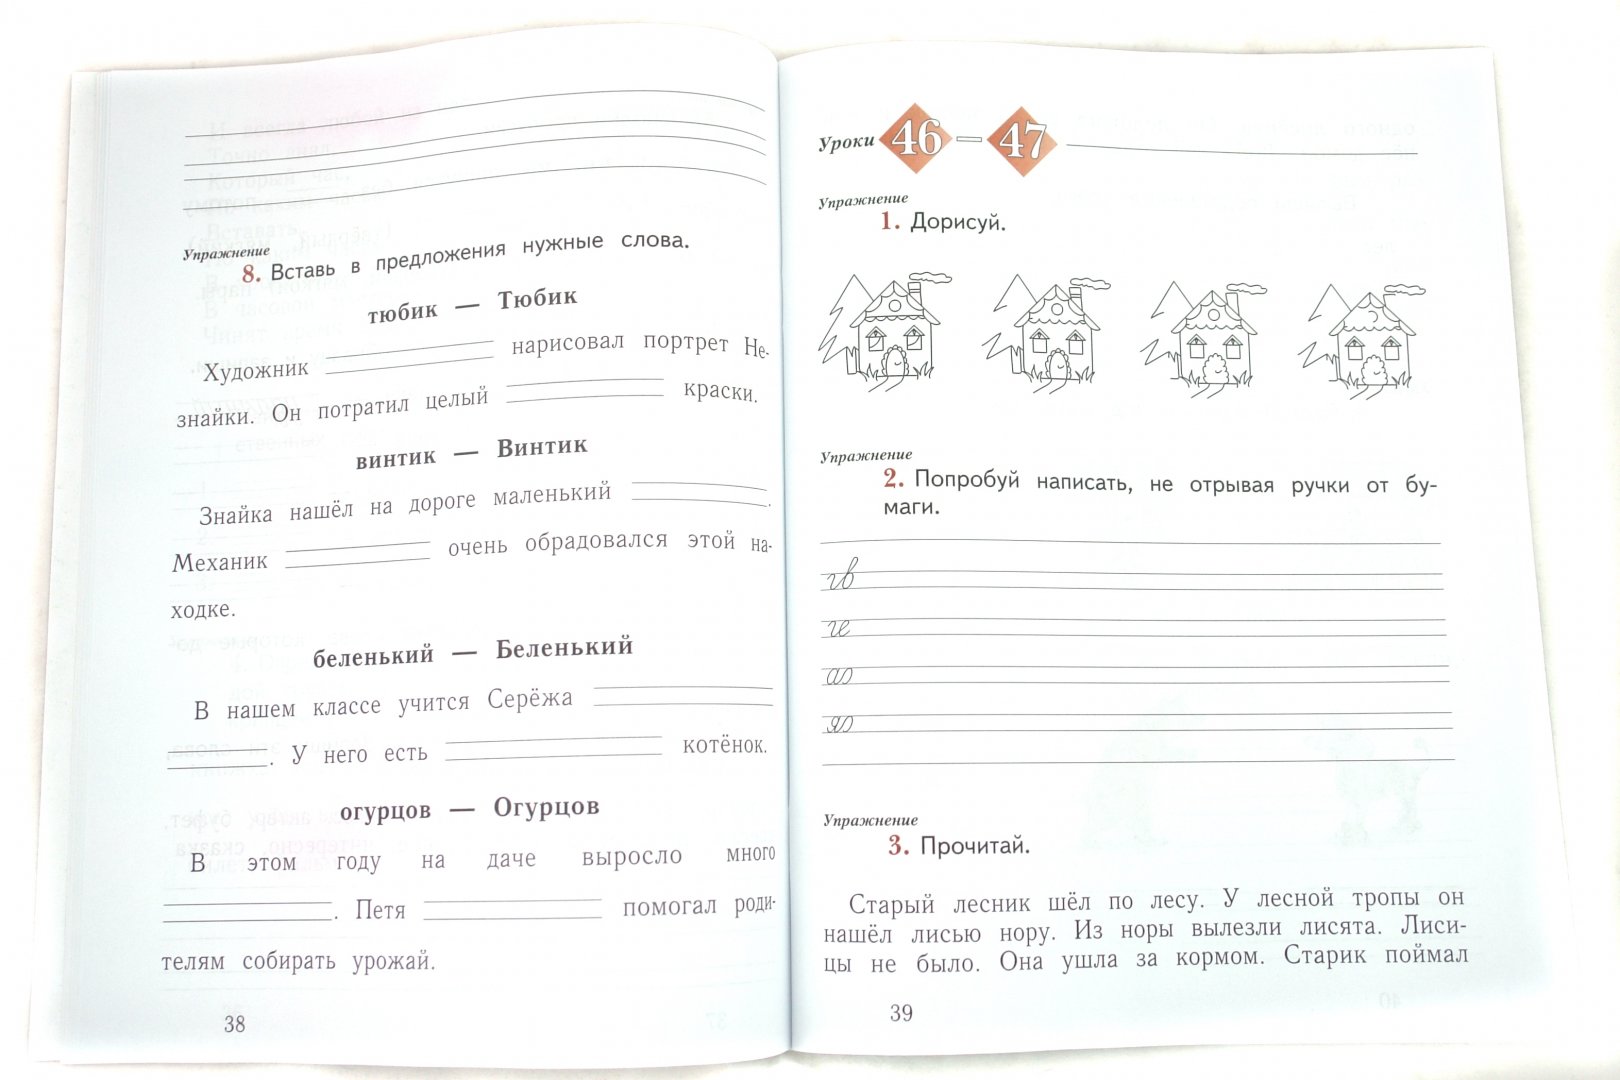 Упражнение
8. Вставь в предложения нужные слова.
тюбик — Тюбик
Художник нарисовал портрет Не-
знайки. Он потратил целый краски.
винтик — Винтик
Знайка нашёл на дороге маленький .
Механик очень обрадовался этой на-
ходке.
беленький — Беленький
В нашем классе учится Серёжа
. У него есть котёнок.
огурцов — Огурцов
В этом году на даче выросло много
. Петя помогал роди-
телям собирать урожай.
38
Уроки 46 — 47
Упражнение
1. Дорисуй.
Упражнение
2. Попробуй написать, не отрывая ручки от бу-
маги.
гв
ге
Упражнение
3. Прочитай.
Старый лесник шёл по лесу. У лесной тропы он
нашёл лисью нору. Из норы вылезли лисята. Лиси-
цы не было. Она ушла за кормом. Старик поймал
39